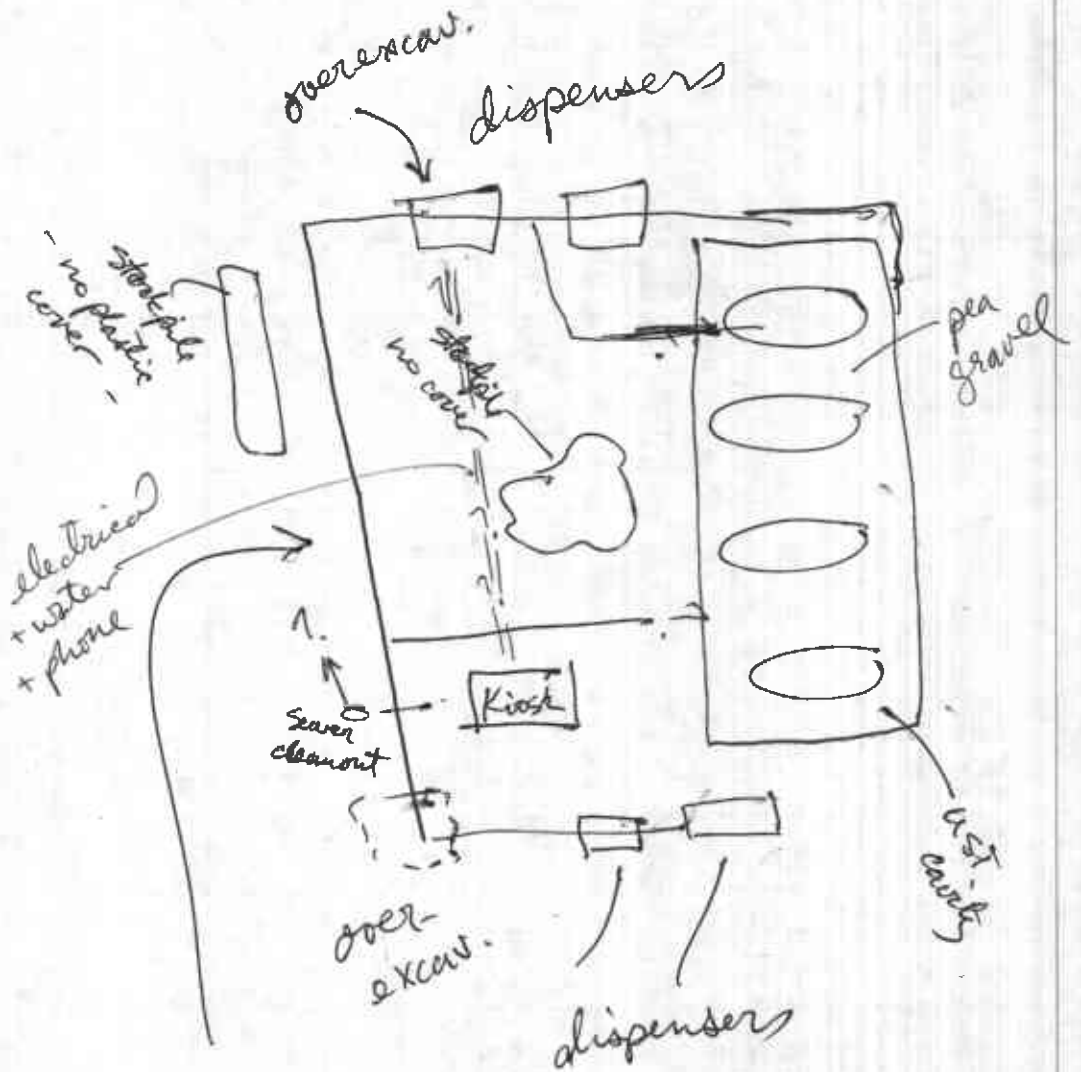 overexcav.
dispensers
- no plastic
cover -
stockpile
stockpile
no cover
pea
gravel
electrical
+ water
+ phone
?
?
?
Sewer
cleanout
Kiosk
UST
cavity
over-
excav.
dispensers